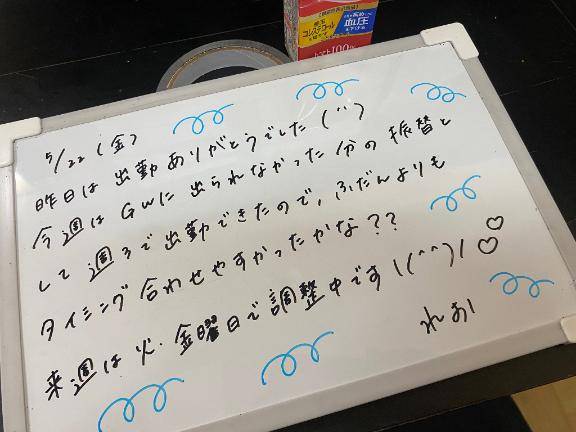 悪玉コレステロールを
高めの血圧を下げる
トマト100%
5/22 (金)
昨日は 出勤ありがとうでした (^^)
今週は GWに 出られなかった分の 振替と
して 週3で出勤できたので、ふだんよりも
タイミング 合わせやすかったかな??
来週は 火・金曜日で調整中です !(^^)! ♡♡
れお